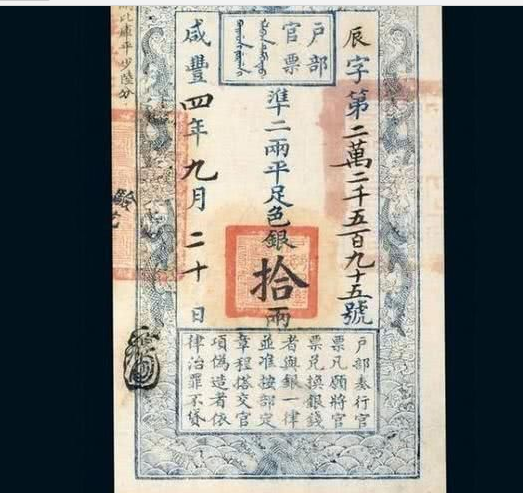 戶部
官票
辰字第二萬二千五百九十五號
準二兩平足色銀拾兩
咸豐四年九月二十日
戶部奏行官
票凡願將官
票兌換銀錢
者與銀一律
並准按部定
章程搭交官
項偽造者依
律治罪不貸
比庫平少陸分